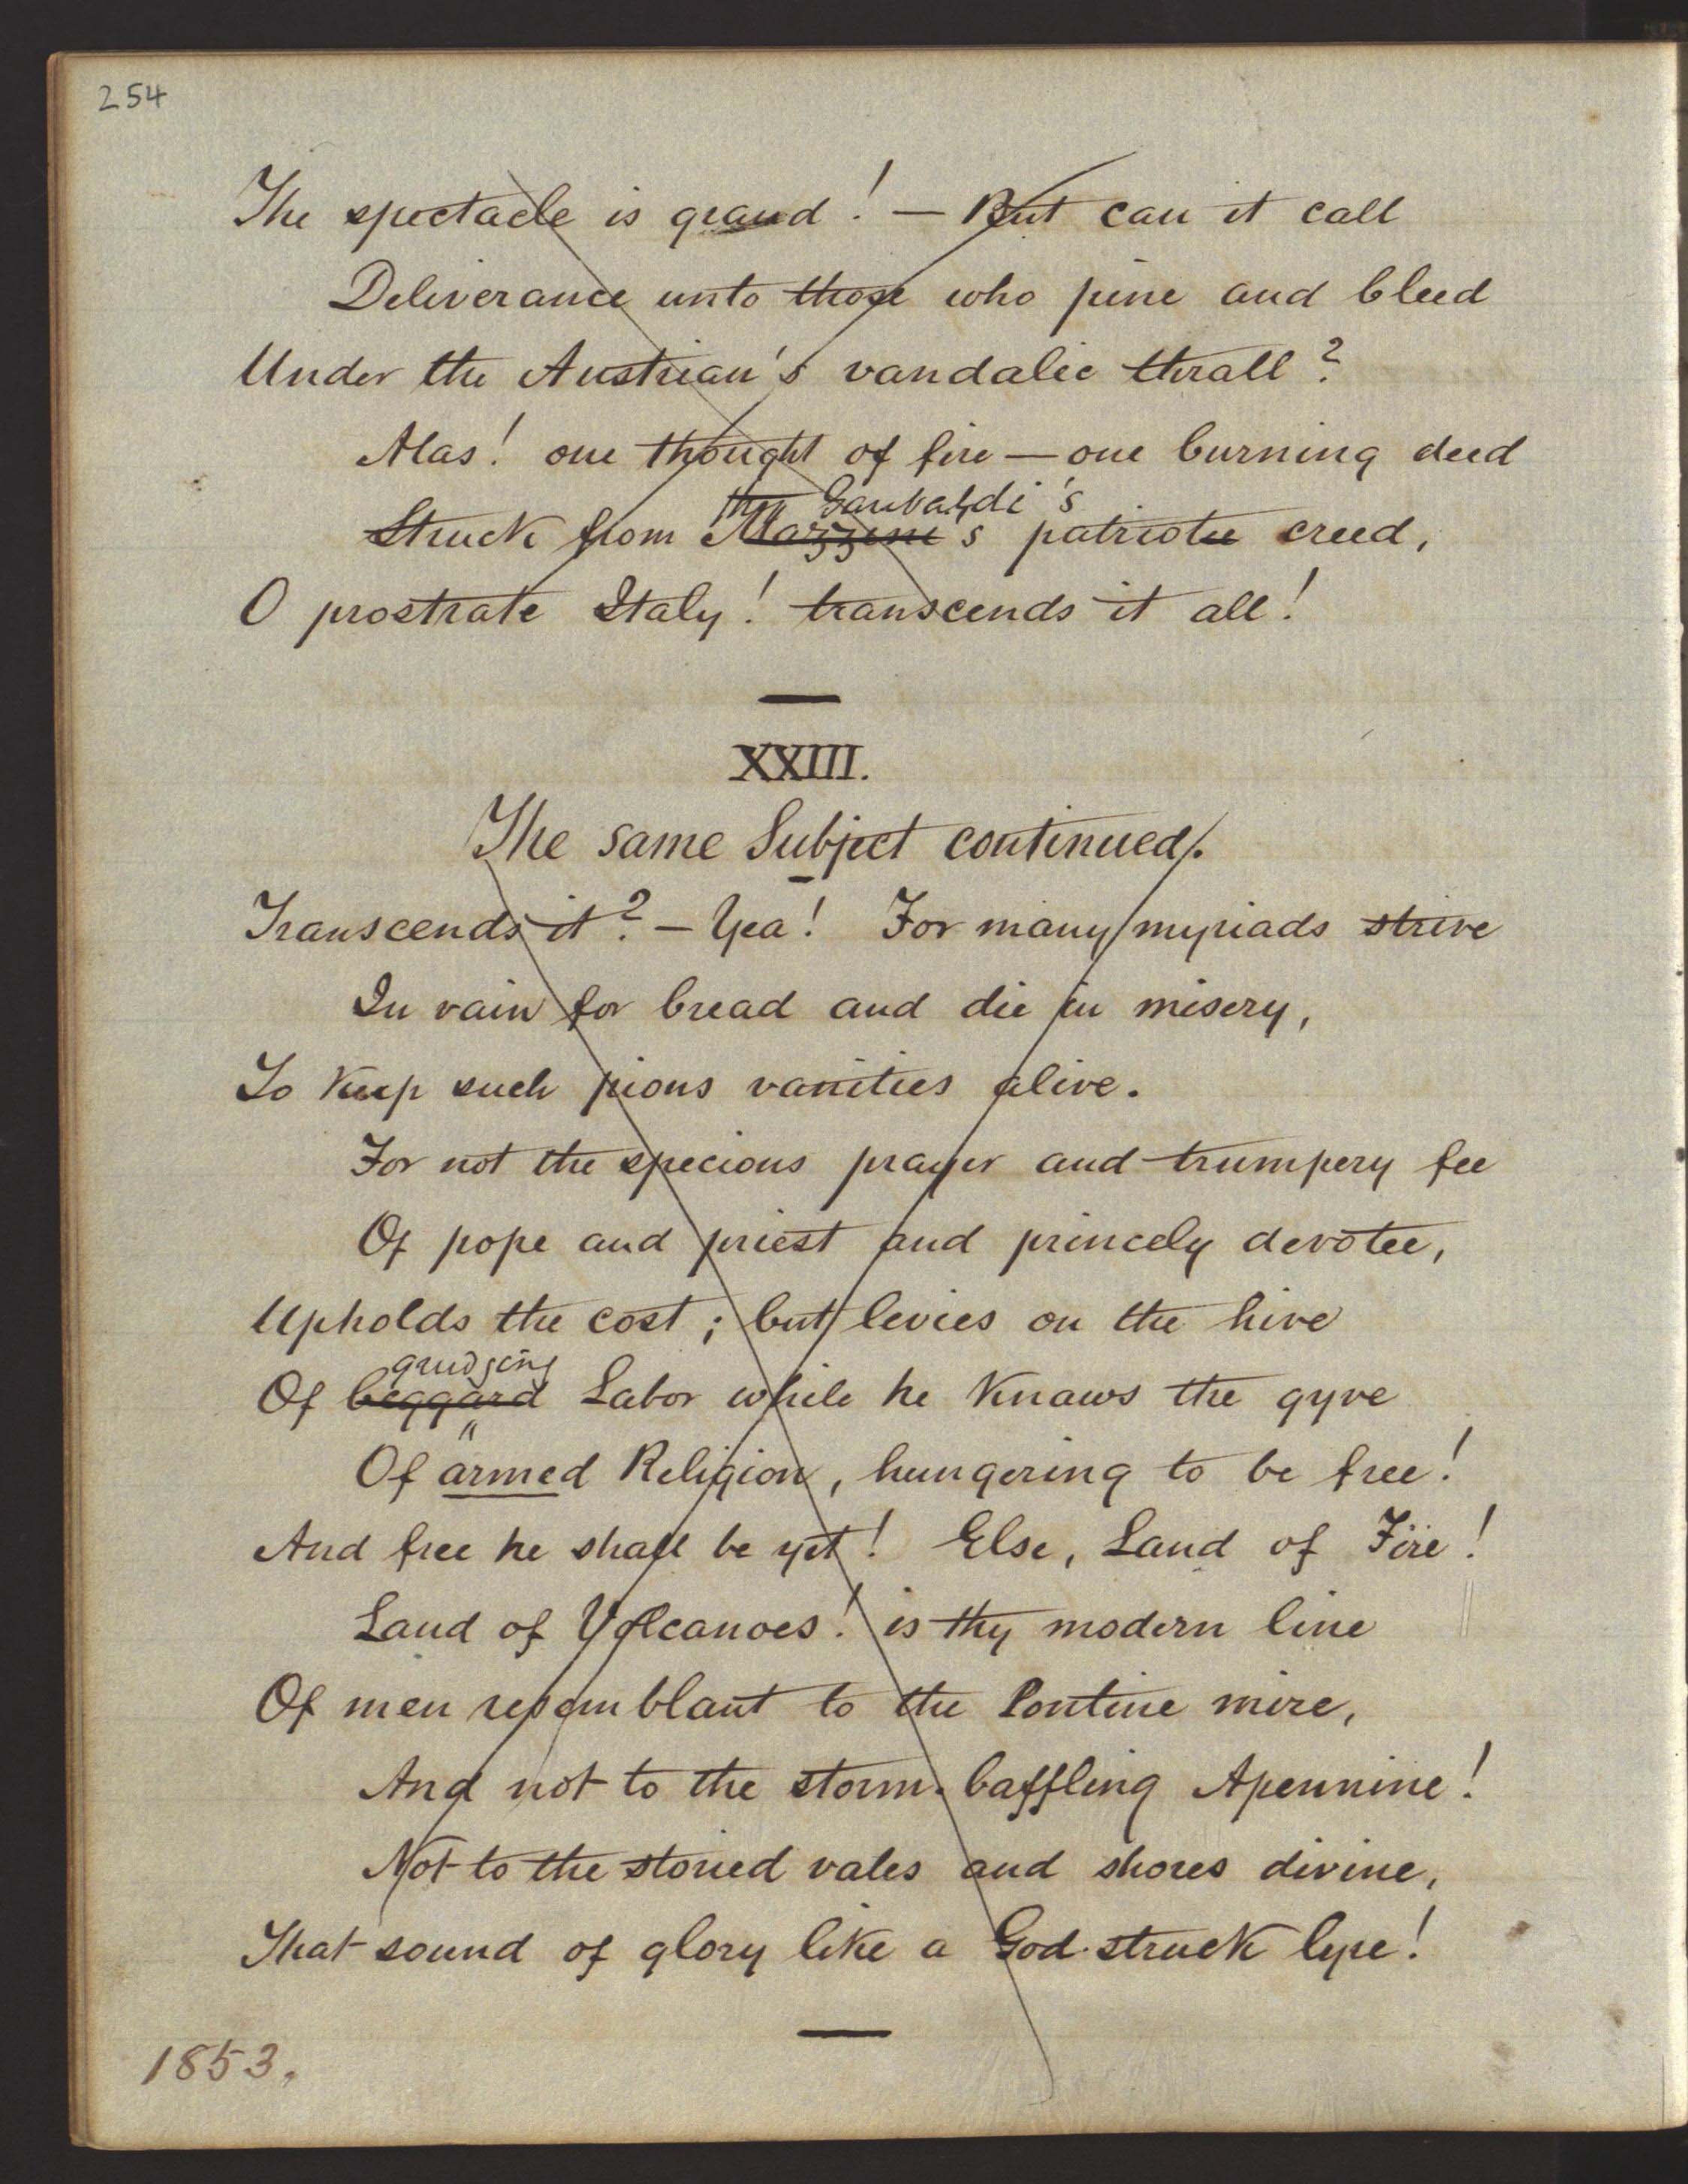 254
The spectacle is grand! — But can it call
Deliverance unto those who pine and bleed
Under the Austrian's vandalic thrall?
Alas! one thought of fire — one burning deed
Garibaldi's
Struck from Mazzini's patriot creed,
O prostrate Italy! transcends it all!
XXIII.
The same Subject continued.
Transcends it? — Yea! For many myriads strive
In vain for bread and die in misery,
To Keep such pious vanities alive.
For not the specious prayer and trumpery fee
Of pope and priest and princely devotee,
Upholds the cost; but levies on the hive
grudging
Of beggard Labor while he Knaws the gyve
Of armed Religion, hungering to be free!
And free he shall be yet! Else, Land of Fire!
Land of Volcanoes! is thy modern line
Of men resemblant to the Pontine mire,
And not to the storm-baffling Apennine!
Not to the storied vales and shores divine,
That sound of glory like a God-struck lyre!
1853.